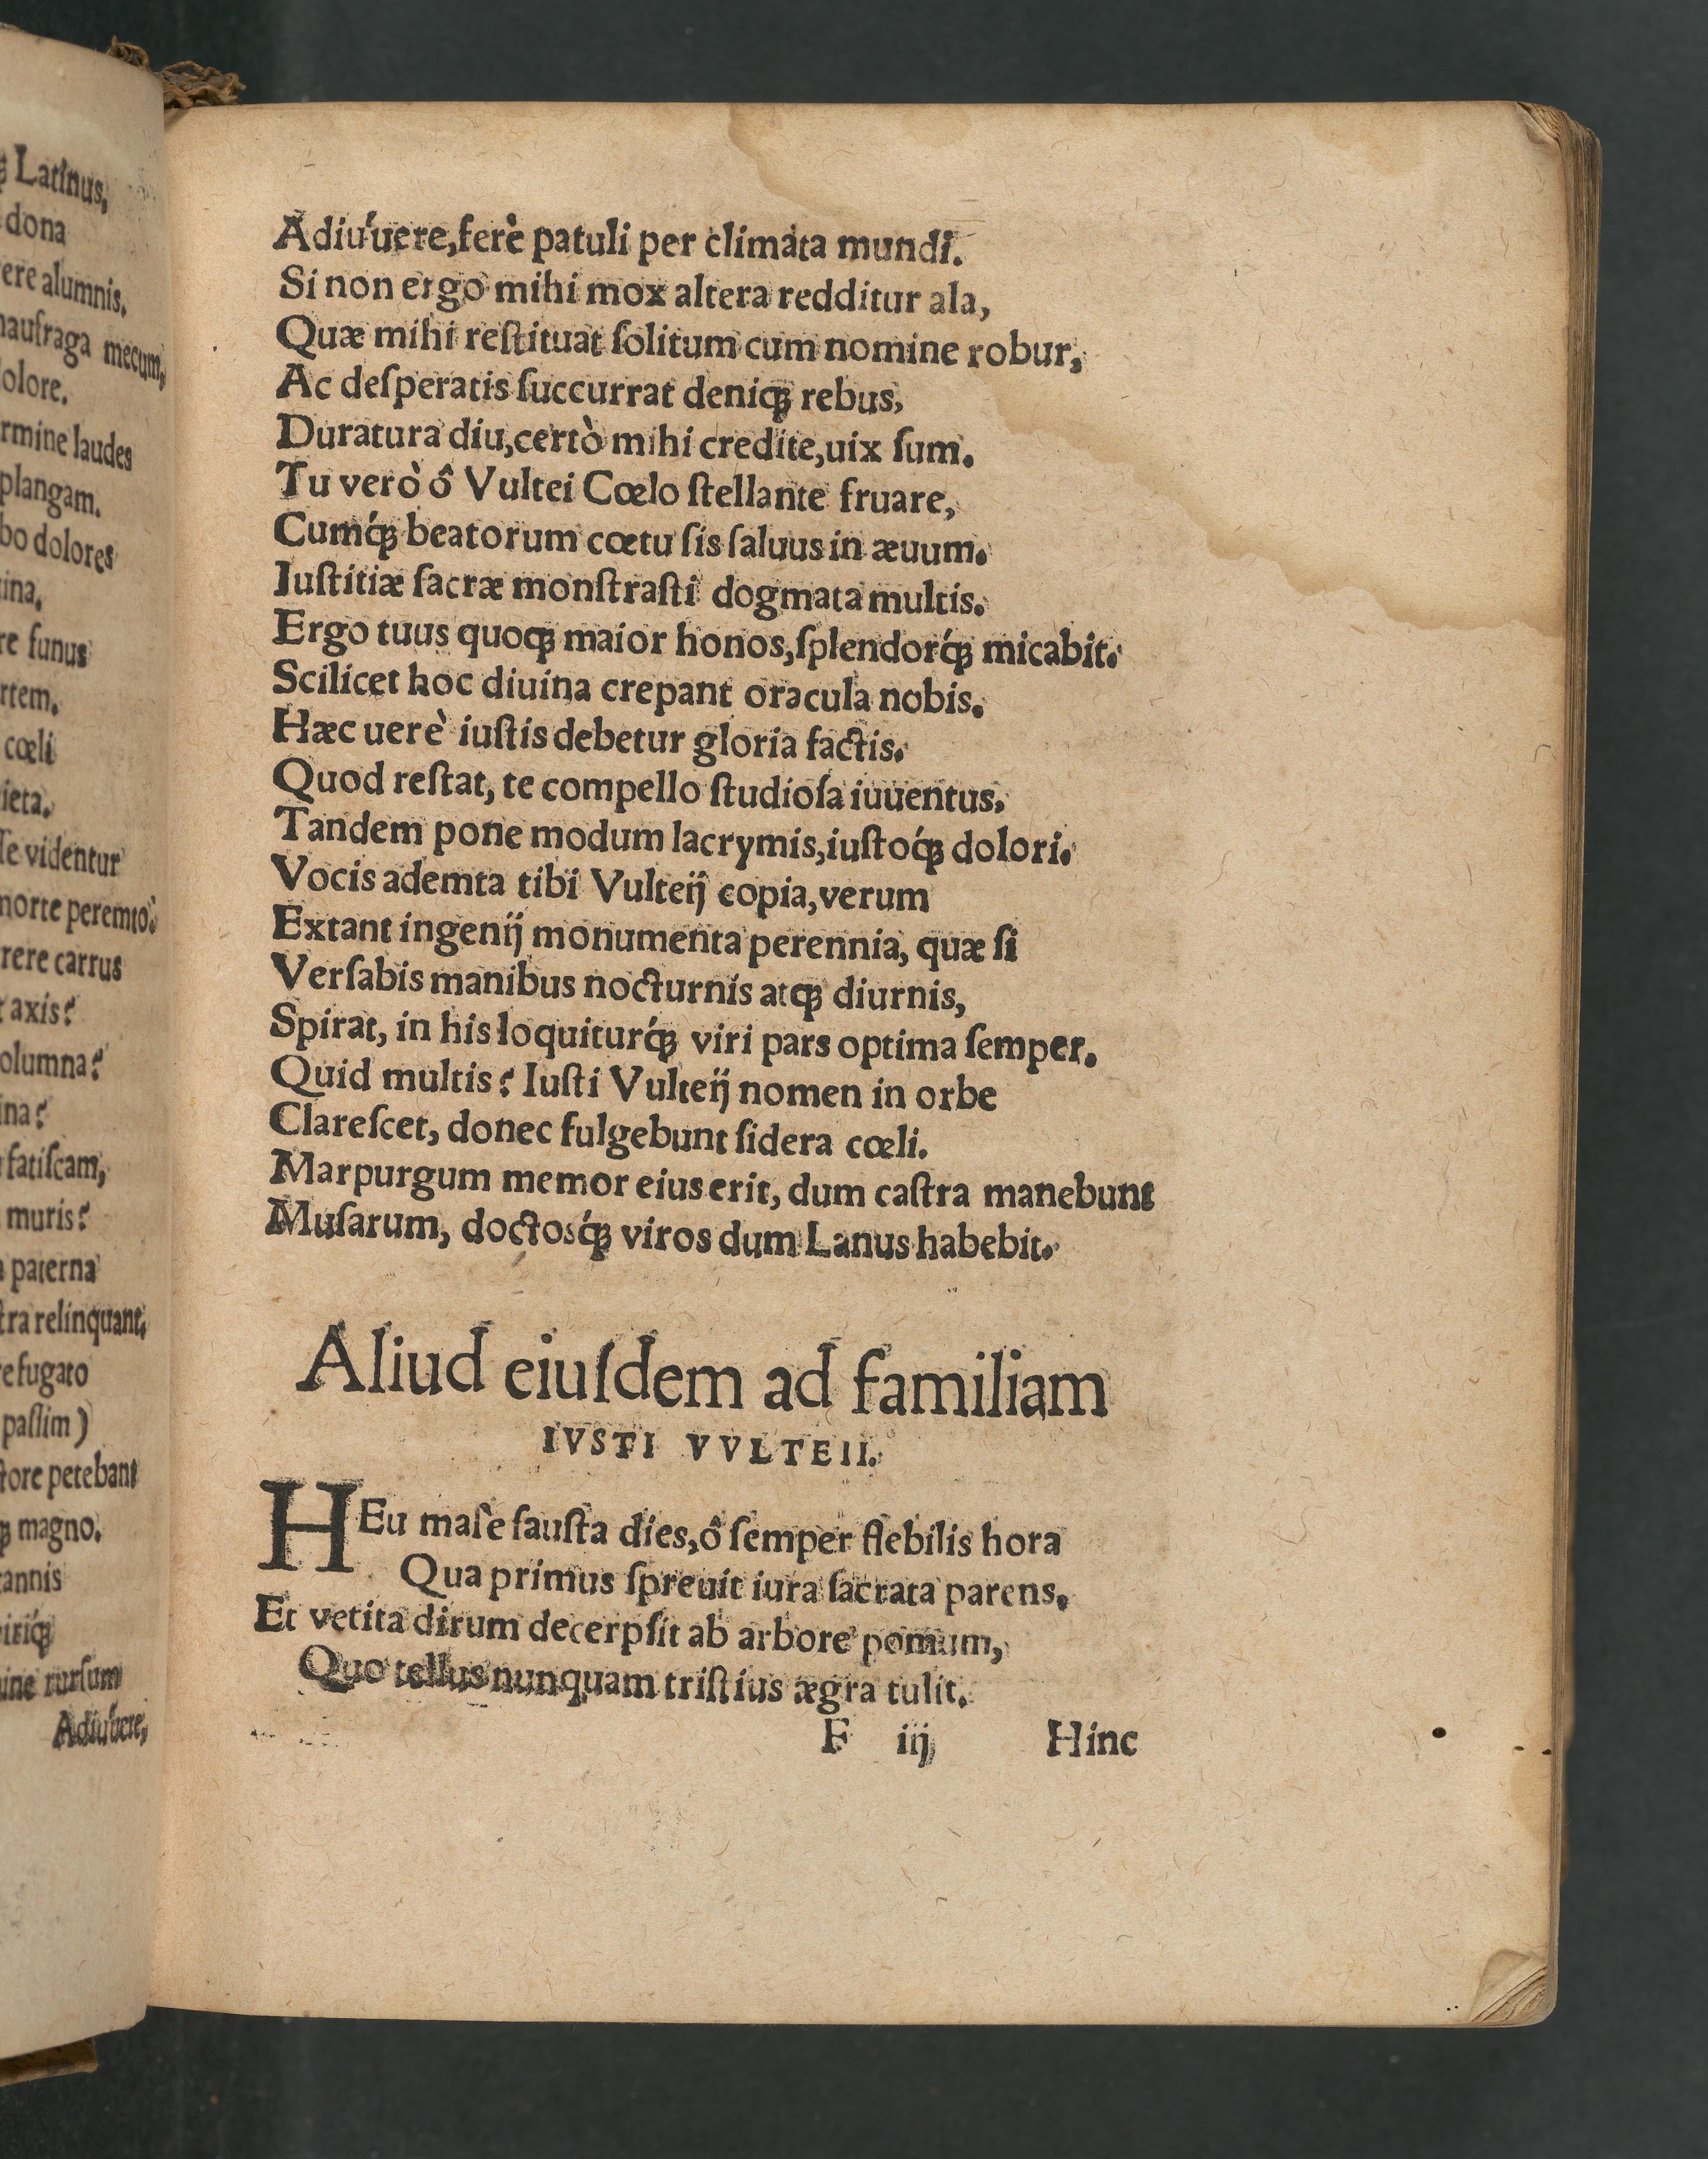 ꝙ Latinus,
dona
ere alumnis.
naufraga mecum,
olore.
rmine laudes
plangam.
bo dolores
ina,
re funus
rtem.
cœli
ieta.
ſe videntur
morte peremto?
rere carrus
axis?
olumna?
ina?
fatiſcam,
muris?
paterna
ſtra relinquant.
refugato
paſſim)
ctore petebant
magno.
annis
iriq́ꝫ
ine rurſum
Adiúuere,
Adiúuere, ferè patuli per climata mundi.
Si non ergo mihi mox altera redditur ala,
Quæ mihi reſtituat ſolitum cum nomine robur,
Ac deſperatis ſuccurrat deniqꝫ rebus,
Duratura diu, certò mihi credite, uix ſum.
Tu verò ô Vultei Cœlo ſtellante fruare,
Cumq́ꝫ beatorum cœtu ſis ſaluus in æuum.
Iuſtitiæ ſacræ monſtraſti dogmata multis.
Ergo tuus quoqꝫ maior honos, ſplendorq́ꝫ micabit.
Scilicet hoc diuina crepant oracula nobis.
Hæc uerè iuſtis debetur gloria factis.
Quod reſtat, te compello ſtudioſa iuuentus,
Tandem pone modum lacrymis, iuſtoq́ꝫ dolori.
Vocis ademta tibi Vulteij copia, verum
Extant ingenij monumenta perennia, quæ ſi
Verſabis manibus nocturnis atqꝫ diurnis,
Spirat, in his loquiturq́ꝫ viri pars optima ſemper.
Quid multis? Iuſti Vulteij nomen in orbe
Clareſcet, donec fulgebunt ſidera cœli.
Marpurgum memor eius erit, dum caſtra manebunt
Muſarum, doctosq́ꝫ viros dum Lanus habebit.
Aliud eiuſdem ad familiam
IVSTI VVLTEII.
HEu malè fauſta dies, ô ſemper flebilis hora
Qua primus ſpreuit iura ſacrata parens.
Et vetita dirum decerpſit ab arbore pomum,
Quo tellus nunquam triſtius ægra tulit.
F iij Hinc